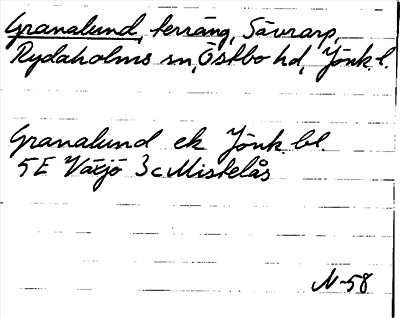 Granalund, terräng, Sävrarp,
Rydaholms sn, Östbo hd, Jönk. l.
Granalund ek Jönk. bl.
5E Växjö 3c Mistelås
N-58